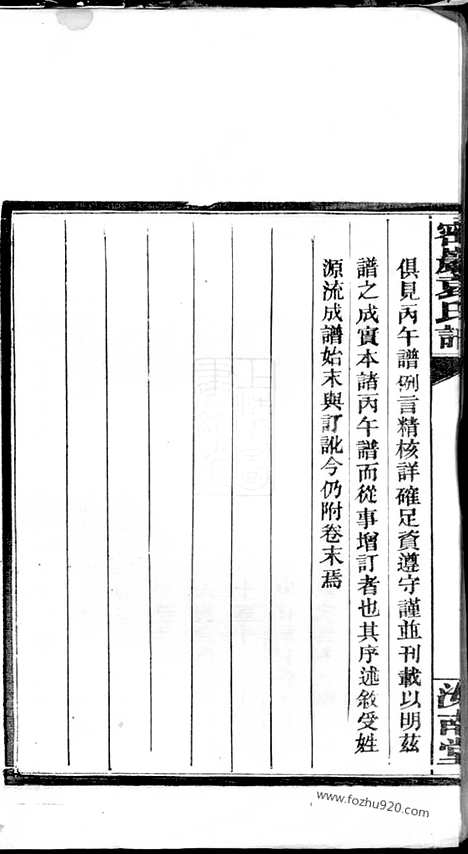 俱見丙午譜例言精核詳確足資遵守謹並刊載以明茲
譜之成實本諸丙午譜而從事增訂者也其序述敘受姓
源流成譜始末與訂訛今仍附卷末焉
袁氏譜
南堂
www.fozhu920.com